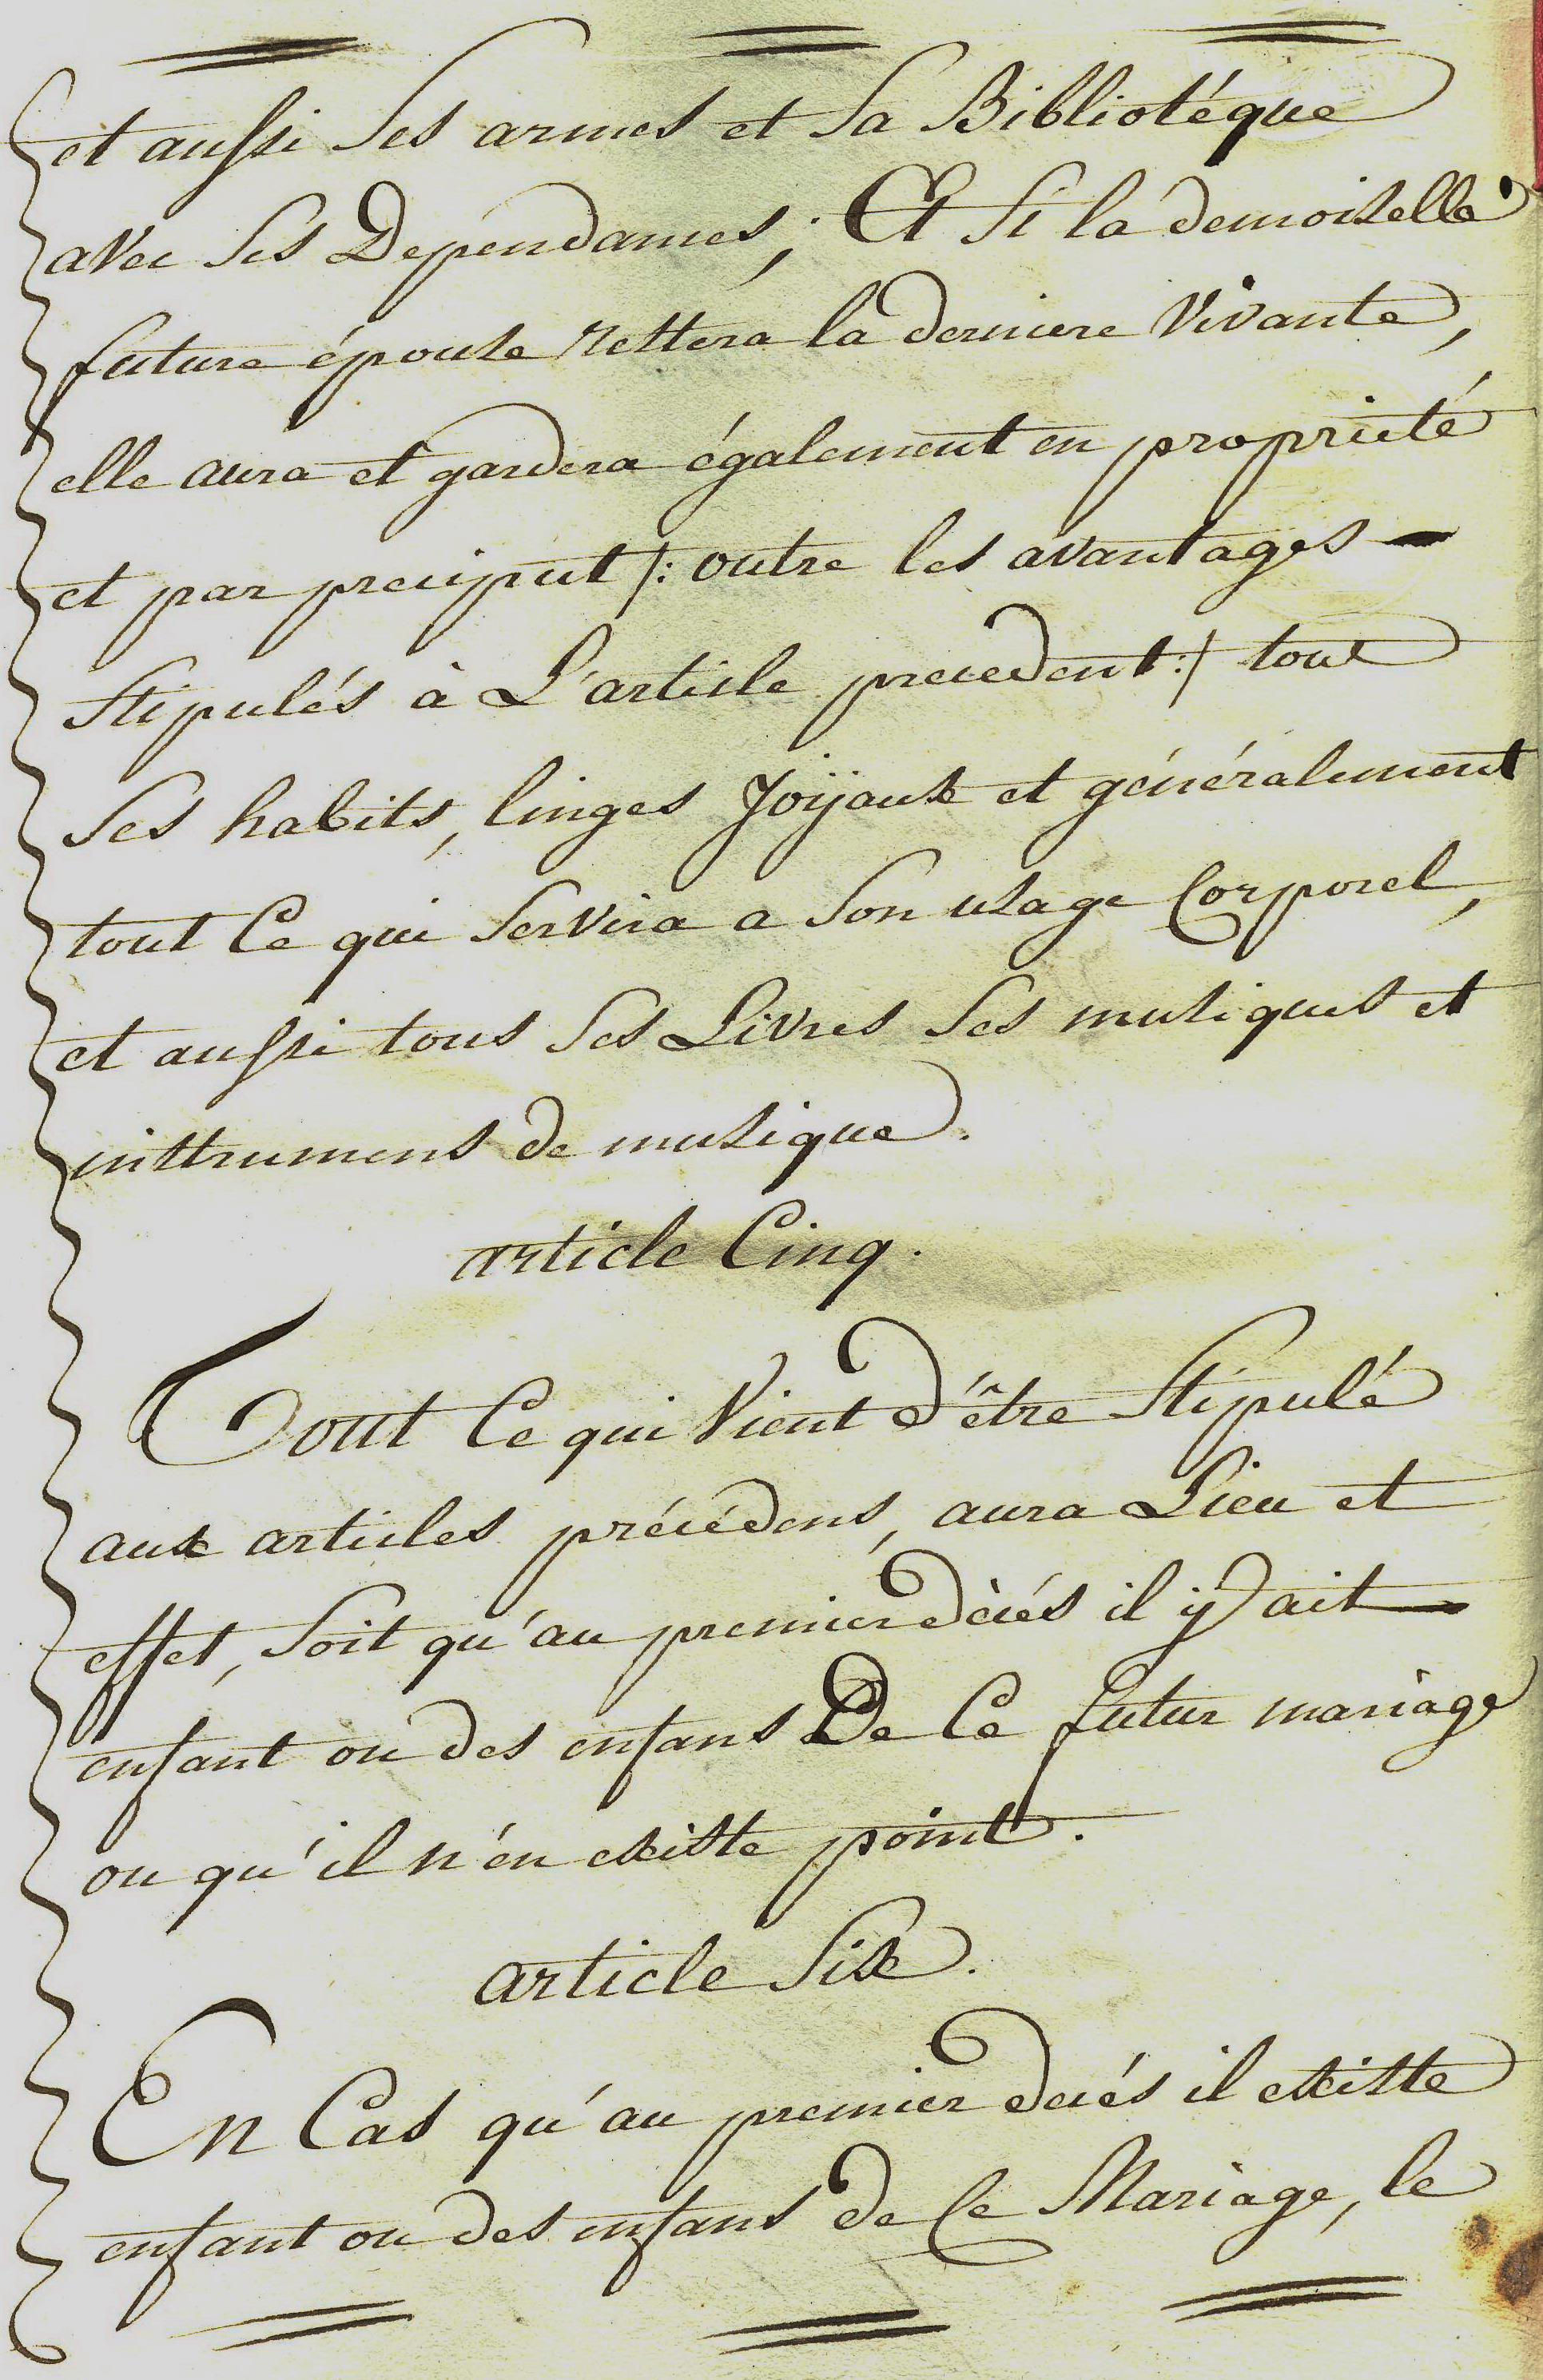 et aussi ses armes et sa Bibliotéque
avec ses Dependances; Et si la demoiselle
future épouse restera la derniere vivante,
elle aura et gardera également en proprieté
et par preciput /: outre les avantages
stipulés à L'article precedent :/ tout
ses habits, linges Joÿaux et généralement
tout ce qui servira a son usage Corporel,
et aussi tous ses Livres ses musiques et
instrumens de musique.
article Cinq.
Tout ce qui vient d'être stipulé
aux articles précédens, aura Lieu et
effet, soit qu'au premier décés il ÿ ait
enfant ou des enfans De Ce futur mariage
ou qu'il n'en existe point.
article Six.
En Cas qu'au premier decés il existe
enfant ou des enfans de Ce Mariage, le